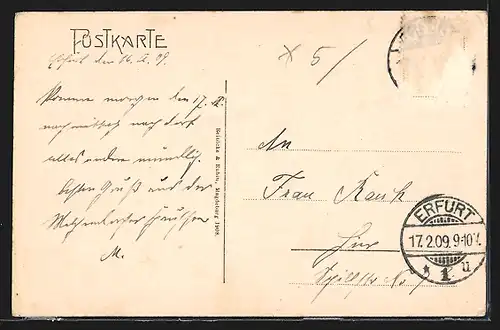 POSTKARTE
Erfurt den 16. II. 09.
Komme morgen den 17. II.
nachmittag nach dort
alles andere mündlich.
Besten Gruß aus der
M.
× 5/
Reinicke & Rubin, Magdeburg 1908.
An
Frau Rank
Hier
ERFURT
17.2.09.9-10V.
* 1 u